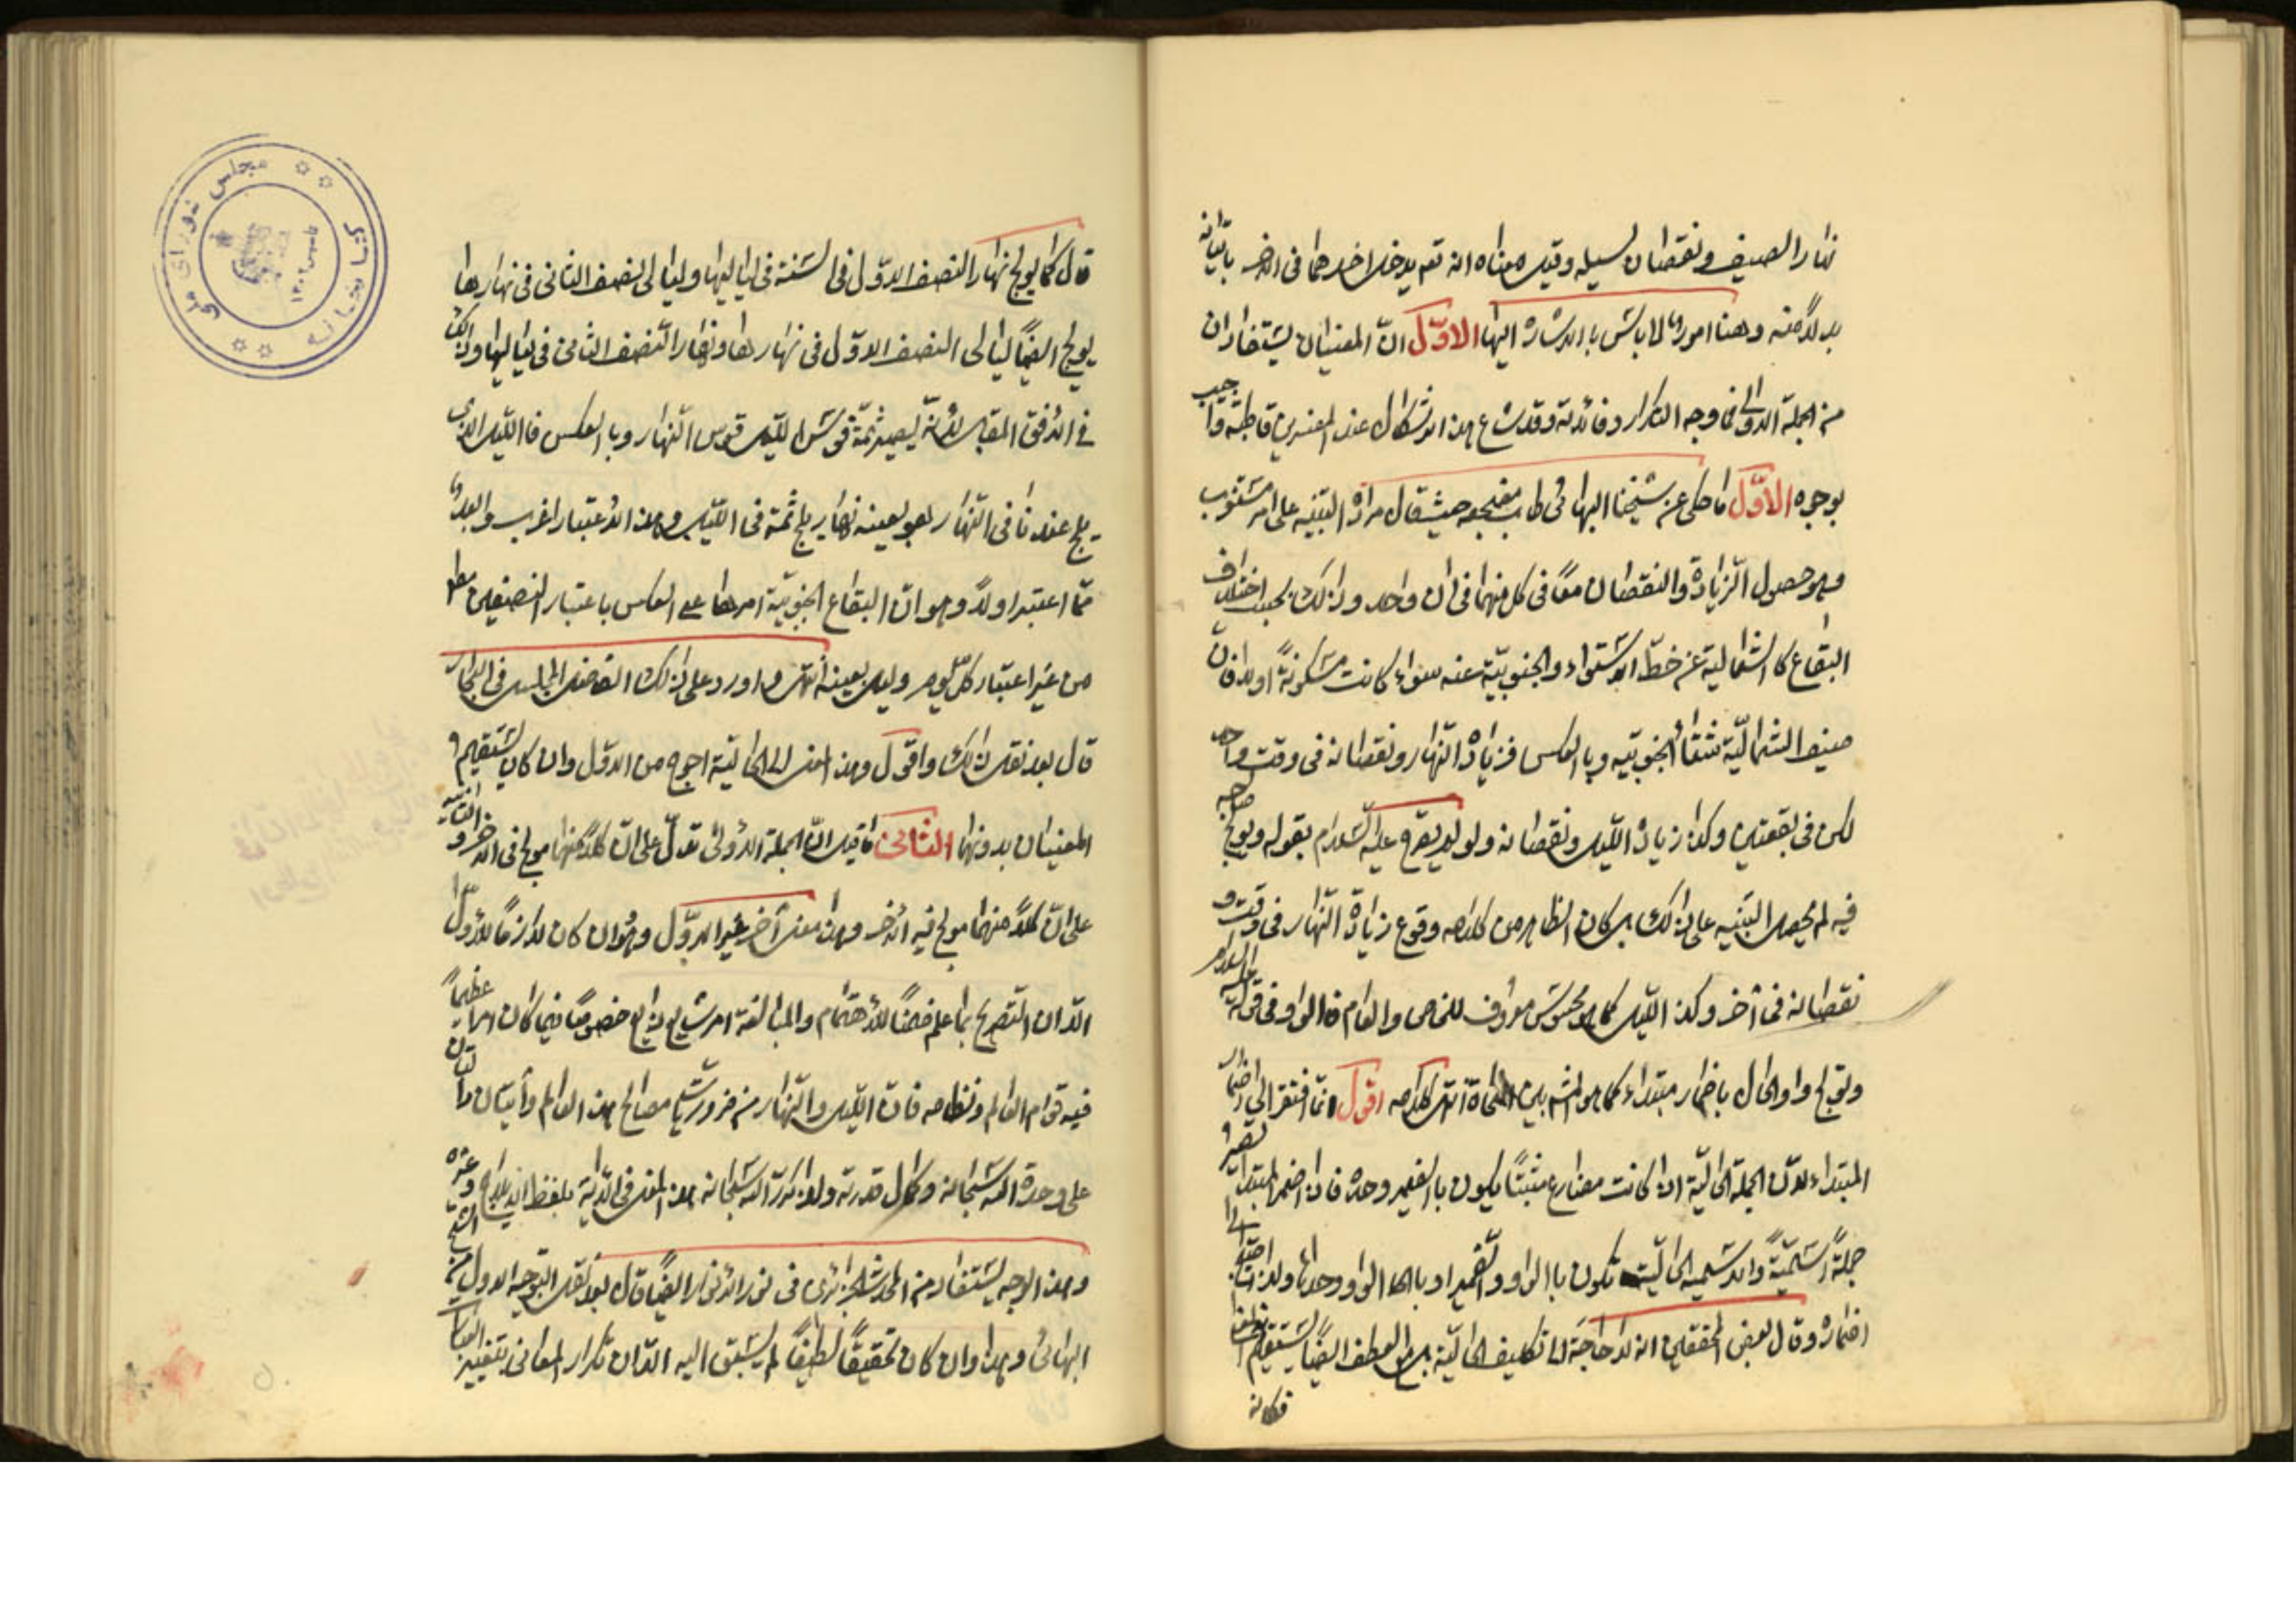 نهار الصيف ونقصان لسيله وقيل معناه انه تعم يدخل احدهما في الاخر باتيانه
بدلا منه وهنا امور لا باس بالاشارة اليها الاوّل انّ المعنيان يستفادان
من الجملة الاولى فما وجه التكرار وفائدته وقد شاع هذا الاشكال عند المفسرين قاطبة واجيب
بوجوه الاوّل ما حكى عن شيخنا البهائى طاب مضجعه حيث قال مراده التنبيه على امر مستغرب
وهو حصول الزّيادة والنقصان معًا في كل منهما في ان واحد وذلك بحسب اختلاف
البقاع كالشمالية عن خطّ الاستواء والجنوبيّة عنه سواء كانت مسكونة اولا فانّ
صيف الشماليّة شتاء الجنوبيّه وبالعكس فزيادة النّهار ونقصانه في وقت واحد
لكن في بقعتين وكذا زيادة اللّيل ونقصانه ولو لم يصرح عليه السّلام بقوله ويولج صاحبه
فيه لم يحصل التّنبيه على ذلك بل كان الظاهر من كلامه وقوع زيادة النّهار في وقت و
نقصانه في آخر وكذا اللّيل كما هو محسوس معروف للخاص والعام فالواو في قوله عليه السلام
ويولج واو الحال باضمار مبتداء كما هو المشهور بين النحاة انتهى كلامه اقول انّما افتقر الى اضمار
المبتداء لانّ الجملة الحاليّة اذا كانت مضارعا مثبتًا يكون بالضمير وحده فاذا اضمر المبتدا تصير
جملةً اسميّةً والاسميه الحاليّة تكون بالواو والضّمير او بالواو وحدها ولذا احتيج الى
اضماره وقال بعض المحققين انه لا حاجة الى تكليف الحاليّة بل مع العطف ايضًا يستقيم
فكانه
قال كما يولج نهار النصف الاوّل في السّنة في لياليها وليالى نصف الثانى في نهارها
يولج ايضًا ليالى النصف الاوّل في نهارها ونهار النّصف الثانى في لياليها وذلك
في الافق المقابل لانّه يصير ثمّة قوس اللّيل قوس النّهار وبالعكس فاللّيل الذى
يلج عندنا في النّهار هو بعينه نهار يلج ثمة في اللّيل وهذا الاعتبار اغرب وابعد
ممّا اعتبر اولًا وهو انّ البقاع الجنوبيّة امرها على العكس باعتبار النصفين مطلقا
من غير اعتبار كلّ يوم وليل بعينه انتهى واورد على ذلك الفاضل المجلسى في البحار
قال بعد نقل ذلك واقول وهذا المعنى الحاليّة احوج من الاوّل وان كان يستقيم
المعنيان بدونها الثانى ما قيل انّ الجملة الاولى تدلّ على انّ كلًا منهما مولج في الاخر والثانية
على انّ كلًا منهما مولج فيه الاخر وهذا معنى آخر غير الاوّل وهو وان كان لازمًا للاوّل
الّا ان التّصريح بما علم ضمنًا للاهتمام والمبالغة امر شايع ذايع خصوصًا فيما كان امرا عظيماً
فيه قوام العالم ونظامه فانّ اللّيل والنّهار من ضروريات مصالح هذا العالم وآيتان دالّتان
على وحدة الله سبحانه وكمال قدرته ولذا كرّر الله سبحانه هذا المعنى في القرآن بلفظ الايلاج وغيره
وهذا الوجه يستفاد من المحدث الجزائرى في نور الانوار ايضًا قال بعد نقل التوجيه الاول من الشيخ
البهائى وهذا وان كان تحقيقًا لطيفًا لم يسبق اليه الّا ان تكرار المعانى بتغيير العبارات
مجلس شورای ملی
کتابخانه